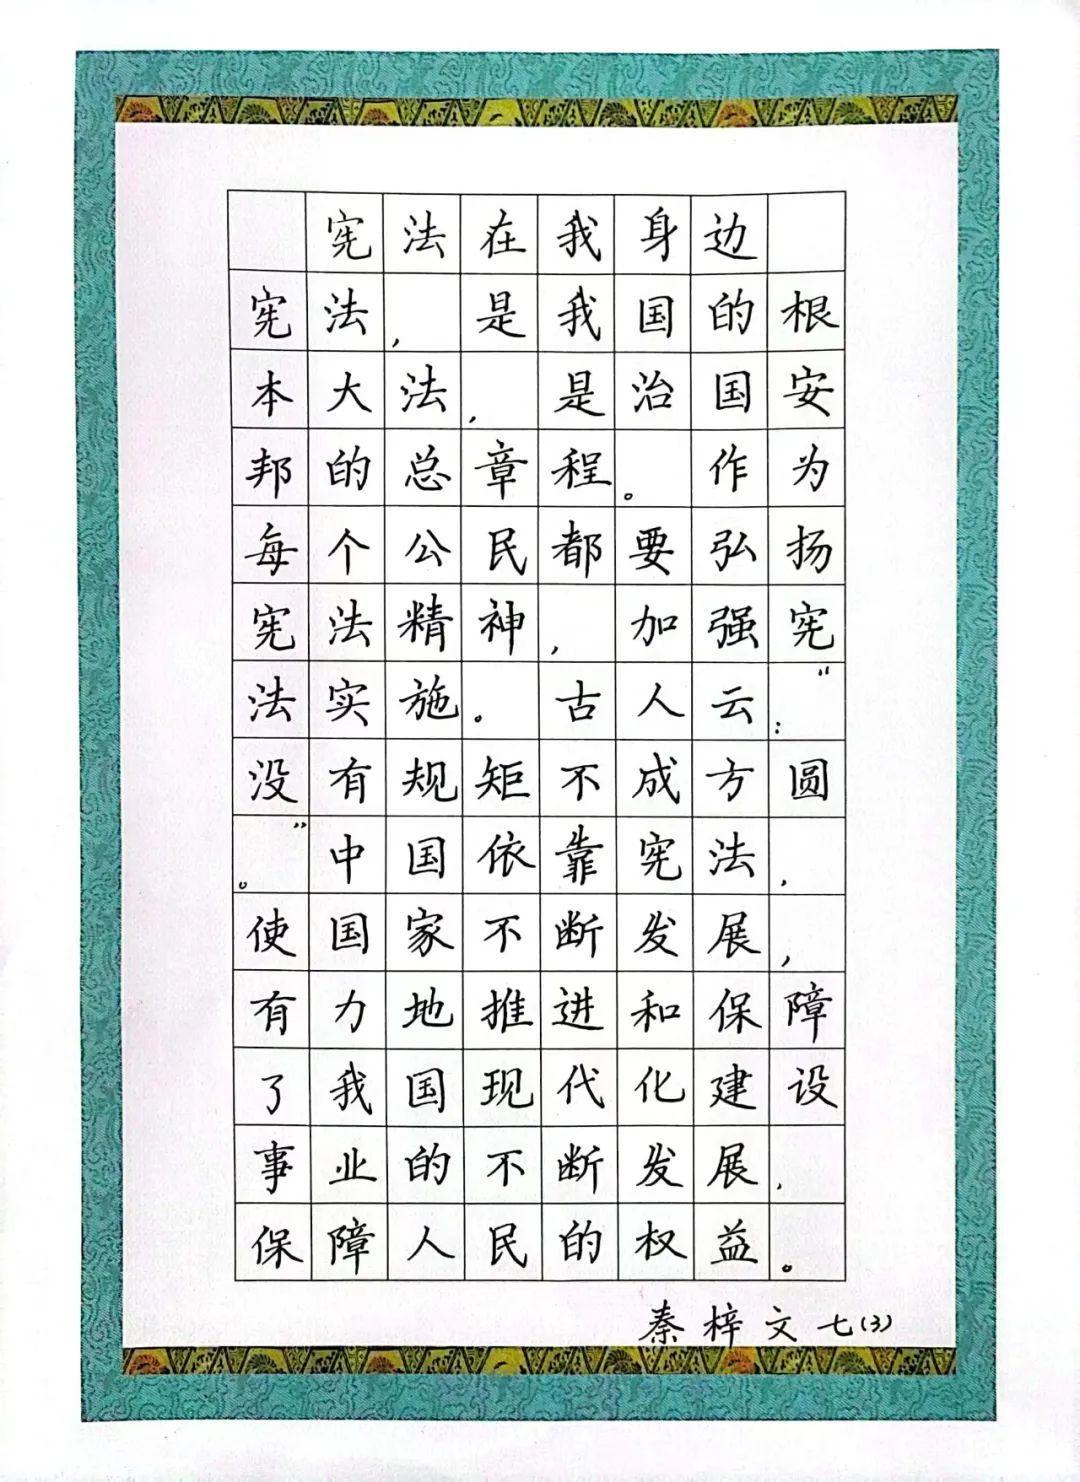 宪法在我身边
宪法，是我国的根
本大法，是治国安
邦的总章程。作为
每个公民都要弘扬
宪法精神，加强宪
法实施。古人云：“
没有规矩不成方圆
。”中国依靠宪法，
使国家不断发展，
有力地推进和保障
了我国现代化建设
事业的不断发展，
保障人民的权益。
秦梓文 七(3)